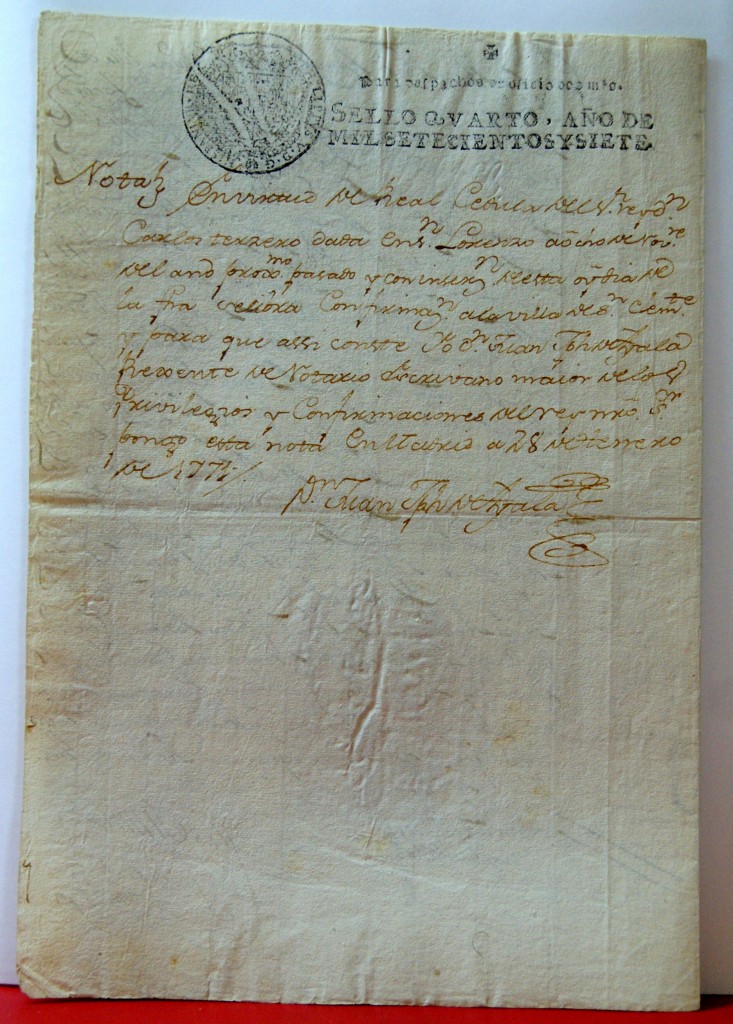 ✠
Para despachos de oficio dos mrs.
SELLO QVARTO, AÑO DE
MILSETECIENTOSYSIETE
Nota En virtud de Real Cedula del Sr. rey Dn
Carlos terzero dada en Sn. Lorenzo a ocho de Nove
del año proxmo pasado y con inserzn de esta oy dia de
la fha se libra Confirmazn a la villa de Sn Clemte
y para que assi conste Yo Dn Juan Jph de Ayala
theniente de Notario Escrivano maior de los
Privilegios y Confirmaciones del rey nro Sr
pongo esta nota En Madrid a 28 de Henero
de 177
Dn Juan Jph de Ayala